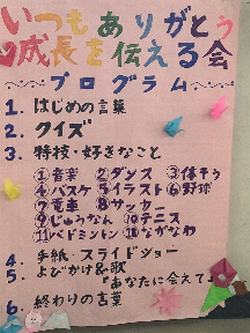 いつもありがとう
成長を伝える会
～プログラム～
1. はじめの言葉
2. クイズ
3. 特技・好きなこと
①音楽 ②ダンス ③体そう
④バスケ ⑤イラスト ⑥野球
⑦電車 ⑧サッカー
⑨じゅうなん ⑩テニス
⑪バドミントン ⑫ながなわ
4. 手紙・スライドショー
5. よびかけ&歌
『あなたに会えて…』
6. 終わりの言葉